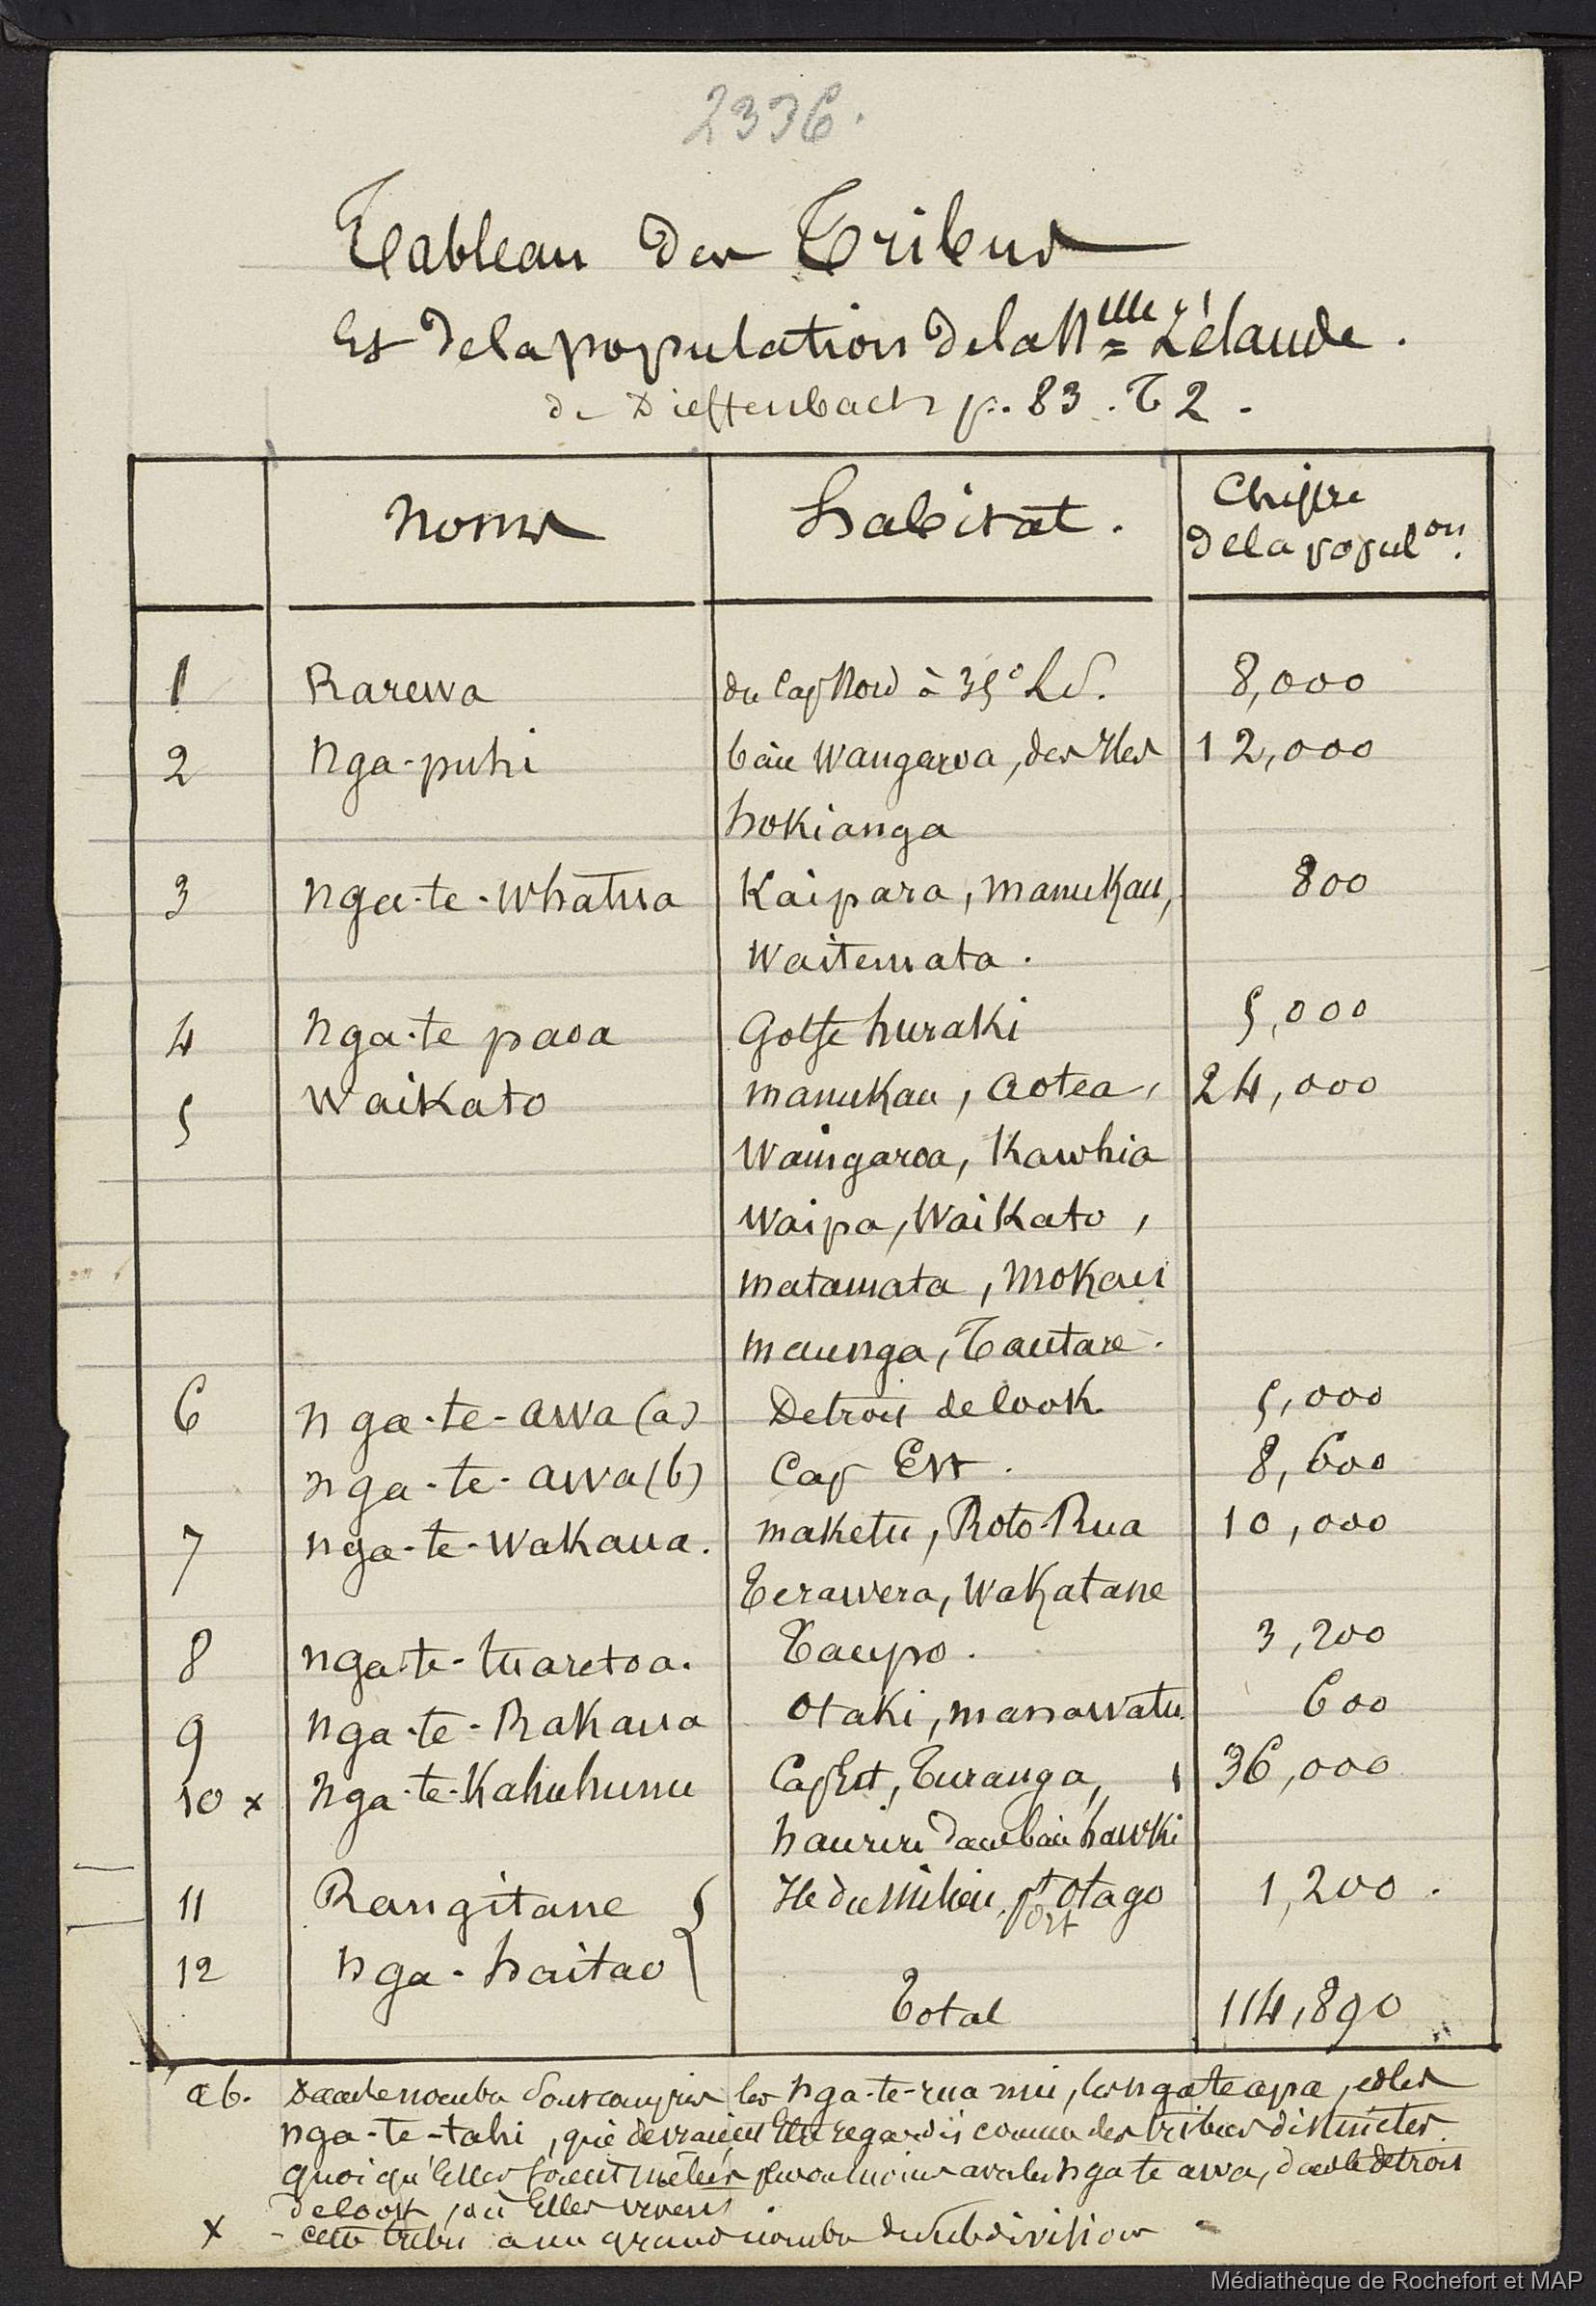 2336.
Tableau des Tribus
Et de la population de la Nlle Zélande.
de Dieffenbach p. 83. T 2.
Noms habitat. Chiffre
de la populon.
1 Rarewa du Cap Nord à 35° L S. 8,000
2 Nga-puhi baie Wangaroa, des Iles 12,000
hokianga
3 nga-te-whatua Kaipara, manukau, 800
Waitemata.
4 Nga-te paoa Golfe huraki 5,000
5 Waikato manukau, aotea, 24,000
Waingaroa, Kawhia
Waipa, Waikato,
matamata, mokau
maunga, Tautare.
6 nga-te-awa (a) Detroit de Cook 5,000
nga-te-awa (b) Cap Est. 8,600
7 nga-te-wakaua. maketu, Roto-Rua 10,000
Terawera, Wakatane
8 nga-te-tuaretoa. Taupo. 3,200
9 nga-te-Rakaua Otaki, manawatu 600
10 x Nga-te-Kahuhunu Cap Est, Turanga, 36,000
hauriri dans baie hawki
11 Rangitane Ile du Milieu, pt Otago 1,200.
ort
12 nga-haitao
Total 114,890
a b. Dans le nombre sont compris les nga-te-rua nui, les nga te apa, et les
nga-te-tahi, qui devraient être regardés comme des tribus distinctes.
quoiqu'Elles soient mêlées plus ou moins avec les nga te awa, dans le detroit
de Cook, où Elles vivent
x - cette tribu a un grand nombre de subdivisions -
Médiathèque de Rochefort et MAP